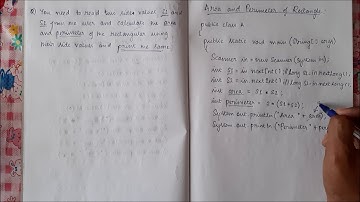 Q) You need to read two sides values S1 and
S2 from the user and calculate the Area
and perimeter of the rectangular using
their side values and print the same.
Area and Perimeter of Rectangle
public class A
public static void main (String[] args)
Scanner in = new Scanner (System.in);
int S1 = in.nextInt(); // long S1 = in.nextLong();
int S2 = in.nextInt(); // long S2 = in.nextLong();
int area = S1 * S2;
int perimeter = 2 * (S1+S2);
System.out.println ("Area" +
System.out.println ("Perimeter" +